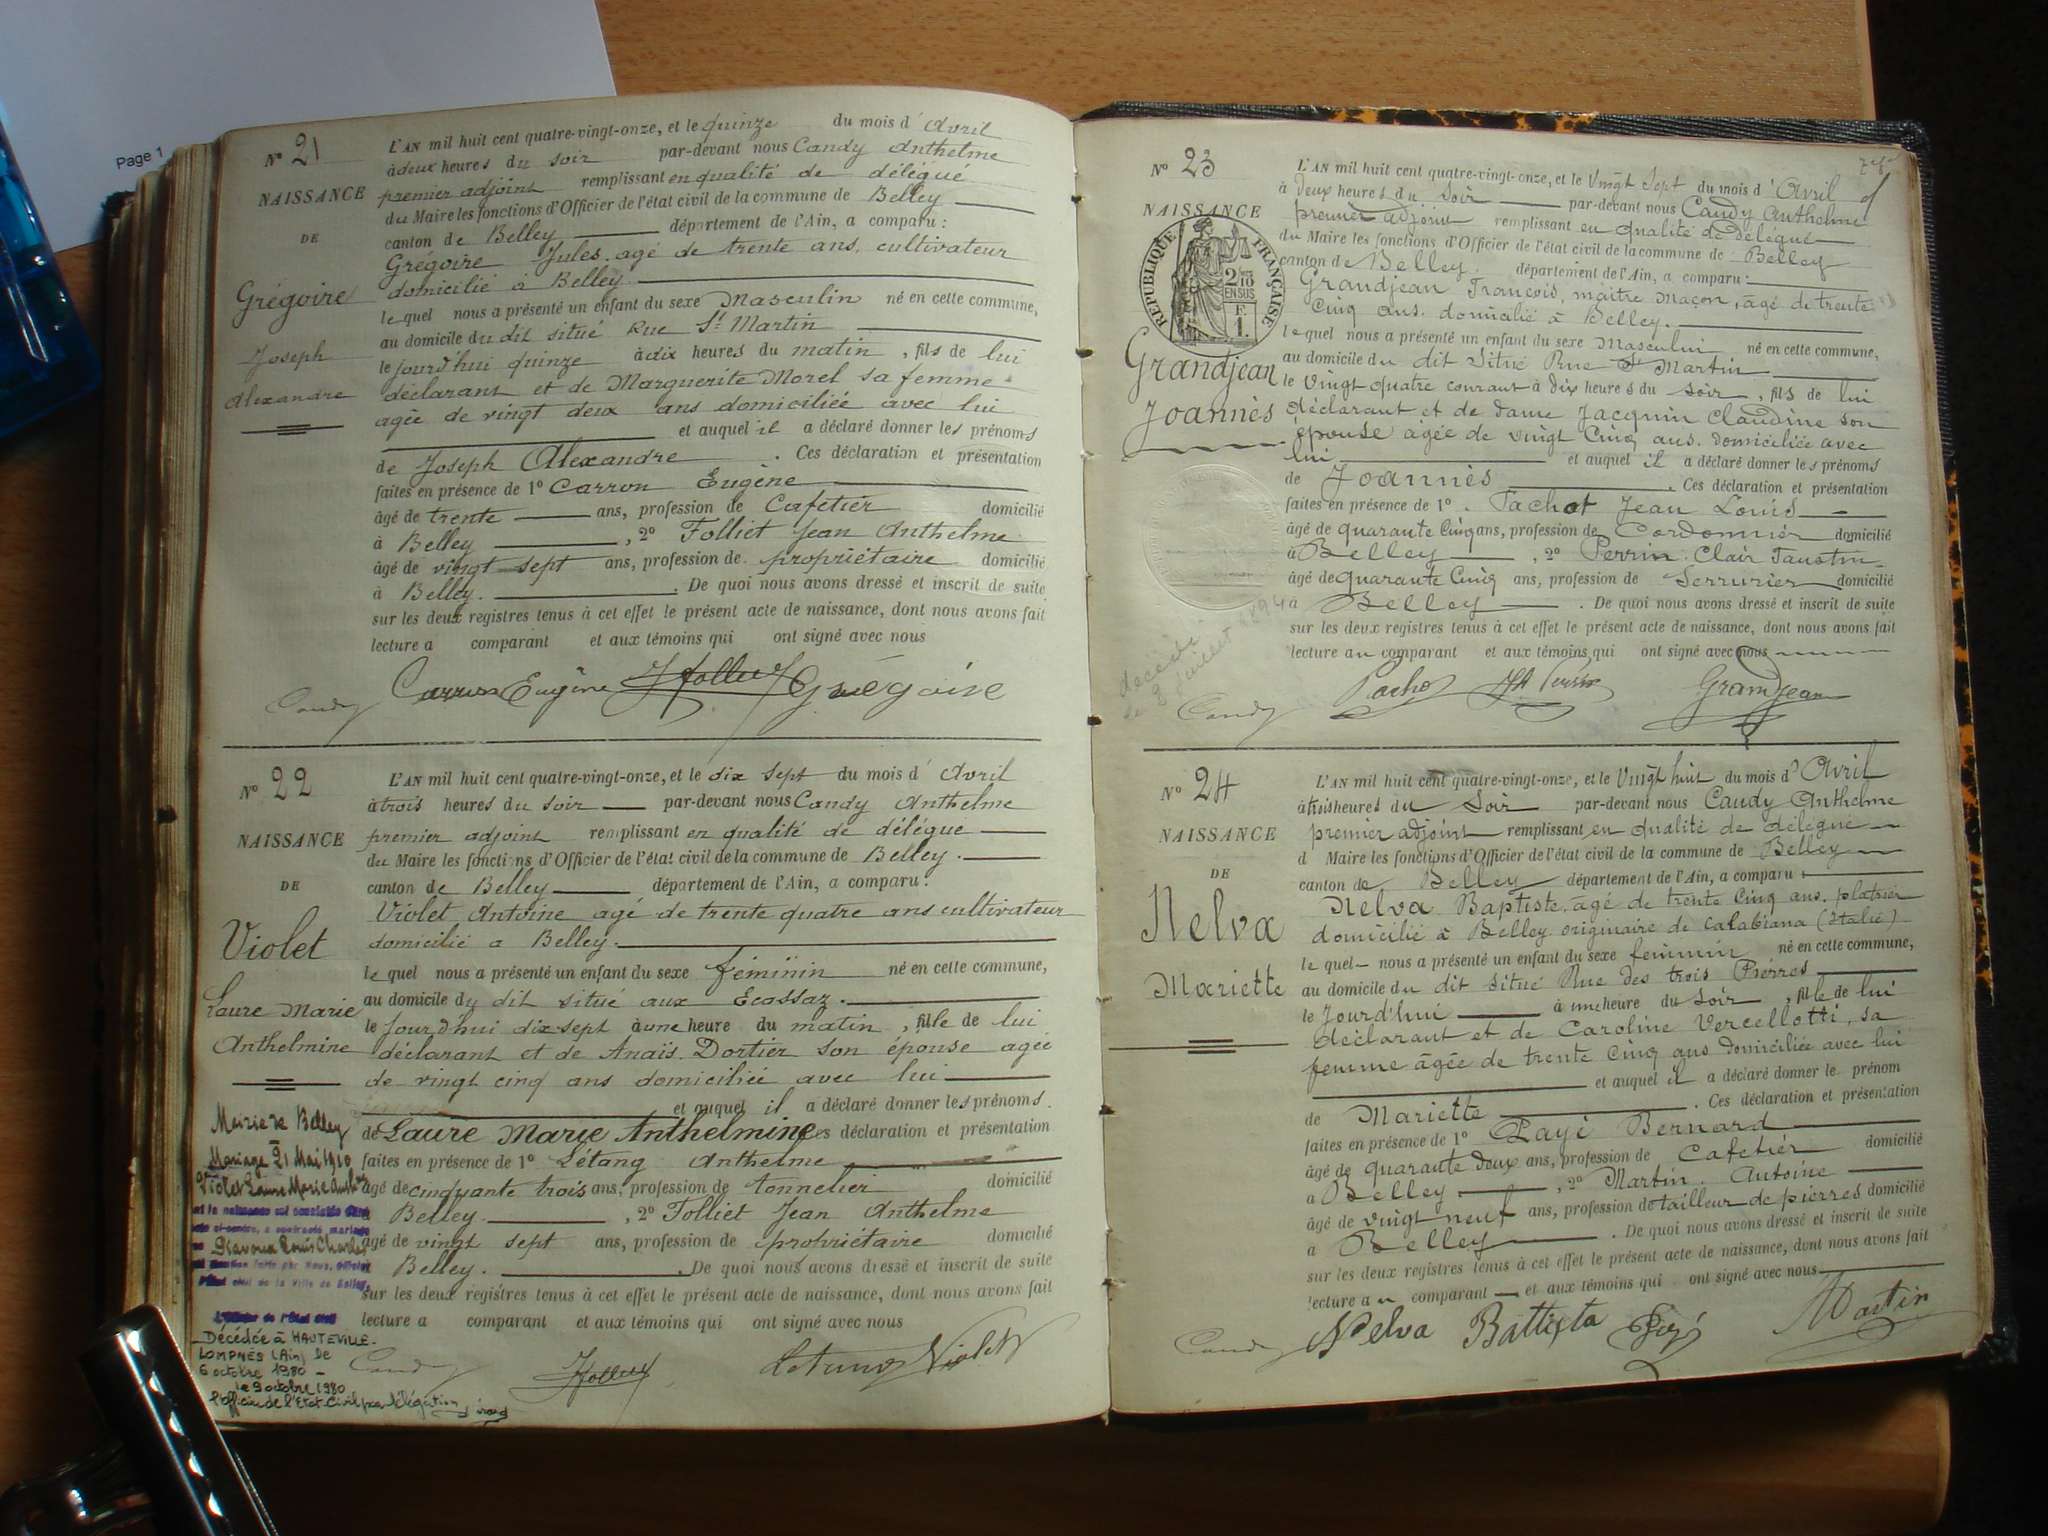 Page 1
N° 21
NAISSANCE
DE
Grégoire
Joseph
Alexandre
L'AN mil huit cent quatre-vingt-onze, et le quinze du mois d' Avril
à deux heures du soir par-devant nous Candy Anthelme
premier adjoint remplissant en qualité de délégué
du Maire les fonctions d'Officier de l'état civil de la commune de Belley
canton de Belley département de l'Ain, a comparu :
Grégoire Jules. agé de trente ans, cultivateur
domicilié à Belley.
le quel nous a présenté un enfant du sexe Masculin né en cette commune,
au domicile du dit situé Rue St Martin
le jourd'hui quinze à dix heures du matin, fils de lui
déclarant et de Marguerite Morel sa femme
agée de vingt deux ans domiciliée avec lui
et auquel il a déclaré donner les prénoms
de Joseph Alexandre. Ces déclaration et présentation
faites en présence de 1° Carron Eugène
âgé de trente ans, profession de Cafetier domicilié
à Belley, 2° Folliet Jean Anthelme
âgé de vingt sept ans, profession de propriétaire domicilié
à Belley. De quoi nous avons dressé et inscrit de suite
sur les deux registres tenus à cet effet le présent acte de naissance, dont nous avons fait
lecture a comparant et aux témoins qui ont signé avec nous
Candy Carron Eugène Jfolliet Grégoire
N° 22
NAISSANCE
DE
Violet
Laure Marie
Anthelmine
L'AN mil huit cent quatre-vingt-onze, et le dix sept du mois d' Avril
à trois heures du soir par-devant nous Candy Anthelme
premier adjoint remplissant en qualité de délégué
du Maire les fonctions d'Officier de l'état civil de la commune de Belley.
canton de Belley département de l'Ain, a comparu :
Violet Antoine agé de trente quatre ans cultivateur
domicilié a Belley.
le quel nous a présenté un enfant du sexe féminin né en cette commune,
au domicile du dit situé aux Ecassaz.
le jourd'hui dix sept à une heure du matin, fille de lui
déclarant et de Anaïs Dortier son épouse agée
de vingt cinq ans domiciliée avec lui
et auquel il a déclaré donner les prénoms.
de Laure Marie Anthelmine Ces déclaration et présentation
faites en présence de 1° Létang Anthelme
âgé de cinquante trois ans, profession de tonnelier domicilié
à Belley., 2° Folliet Jean Anthelme
âgé de vingt sept ans, profession de propriétaire domicilié
Belley. De quoi nous avons dressé et inscrit de suite
sur les deux registres tenus à cet effet le présent acte de naissance, dont nous avons fait
lecture a comparant et aux témoins qui ont signé avec nous
Candy Jfolliet Letang Violet
Mairie de Belley
Mariage 21 Mai 1910
Violet Laure Marie
a contracté mariage
Louis Charles
l'Etat civil de la Ville de Belley
L'Officier de l'Etat Civil
Décédée à HAUTEVILLE-
LOMPNES (Ain) le
6 octobre 1980 -
le 9 octobre 1980
l'officier de l'Etat-Civil par délégation
N° 23
NAISSANCE
RÉPUBLIQUE FRANÇAISE
2/10 EN SUS
F. 1.
Grandjean
Joannès
L'AN mil huit cent quatre-vingt-onze, et le vingt sept du mois d' Avril
à deux heures du soir par-devant nous Candy Anthelme
premier adjoint remplissant en qualité de délégué
du Maire les fonctions d'Officier de l'état civil de la commune de Belley
canton de Belley. département de l'Ain, a comparu :
Grandjean François, maître maçon, agé de trente
cinq ans. domicilié à Belley.
le quel nous a présenté un enfant du sexe Masculin né en cette commune,
au domicile du dit situé Rue St Martin
le vingt quatre courant à dix heures du soir, fils de lui
déclarant et de dame Jacquin Claudine son
épouse agée de vingt cinq ans. domiciliée avec
lui et auquel il a déclaré donner les prénoms
de Joannès. Ces déclaration et présentation
faites en présence de 1°. Pachot Jean Louis
âgé de quarante cinq ans, profession de Cordonnier domicilié
à Belley, 2° Perrin Clair Faustin
âgé de quarante cinq ans, profession de Serrurier domicilié
à Belley. De quoi nous avons dressé et inscrit de suite
sur les deux registres tenus à cet effet le présent acte de naissance, dont nous avons fait
lecture au comparant et aux témoins qui ont signé avec nous
décédé
le 8 juillet 1894
Candy Pachot Perrin Grandjean
N° 24
NAISSANCE
DE
Nelva
Mariette
L'AN mil huit cent quatre-vingt-onze, et le vingt huit du mois d' Avril
à trois heures du soir par-devant nous Candy Anthelme
premier adjoint remplissant en qualité de délégué
d Maire les fonctions d'Officier de l'état civil de la commune de Belley
canton de Belley département de l'Ain, a comparu
Nelva Baptiste. agé de trente cinq ans. platrier
domicilié à Belley originaire de Calabiana (Italie)
le quel nous a présenté un enfant du sexe feminin né en cette commune,
au domicile du dit situé Rue des trois Pierres
le jourd'hui à une heure du soir, fille de lui
déclarant et de Caroline Vercellotti, sa
femme âgée de trente cinq ans domiciliée avec lui
et auquel il a déclaré donner le prénom
de Mariette. Ces déclaration et présentation
faites en présence de 1° Payé Bernard
âgé de quarante deux ans, profession de Cafetier domicilié
à Belley, 2° Martin. Antoine
âgé de vingt neuf ans, profession de tailleur de pierres domicilié
à Belley. De quoi nous avons dressé et inscrit de suite
sur les deux registres tenus à cet effet le présent acte de naissance, dont nous avons fait
lecture au comparant et aux témoins qui ont signé avec nous
Candy Nelva Battista Payé Martin